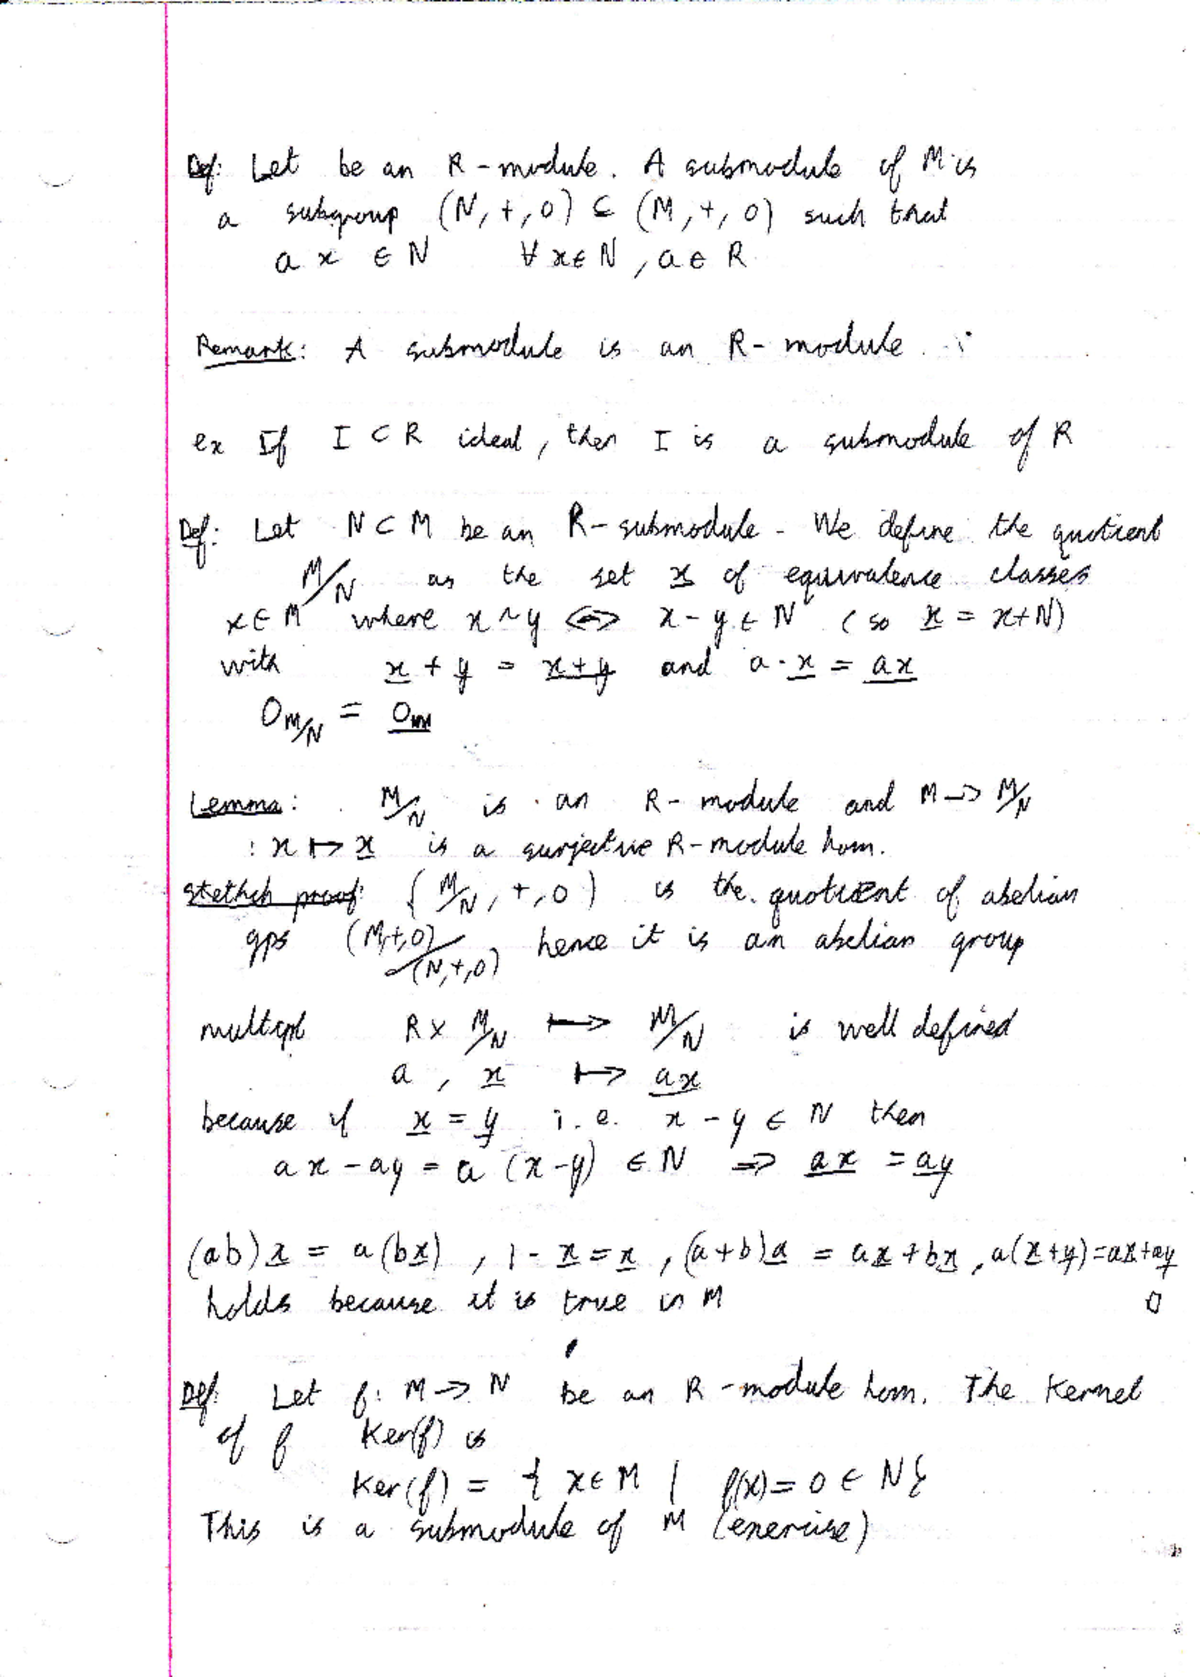 Def: Let be an R-module. A submodule of M is
a subgroup (N, +, 0) ⊆ (M, +, 0) such that
a x ∈ N ∀ x ∈ N, a ∈ R
Remark: A submodule is an R-module.
ex If I ⊂ R ideal, then I is a submodule of R
Def: Let N ⊂ M be an R-submodule. We define the quotient
M/N as the set x̲ of equivalence classes
x ∈ M where x ~ y ⇔ x - y ∈ N (so x̲ = x+N)
with x̲ + y̲ = x+y̲ and a · x̲ = a̲x̲
0_{M/N} = 0̲_M̲
Lemma: M/N is an R-module and M → M/N
: x ↦ x̲ is a surjective R-module hom.
stethch proof: (M/N, +, 0) is the quotient of abelian
gps (M,+,0)/(N,+,0), hence it is an abelian group
multipl R × M/N ↦ M/N is well defined
a, x̲ ↦ a̲x̲
because if x̲ = y̲ i.e. x - y ∈ N then
ax - ay = a (x-y) ∈ N ⇒ a̲x̲ = a̲y̲
(ab)x̲ = a(bx̲), 1 · x̲ = x̲, (a+b)x̲ = ax̲ + bx̲, a(x̲+y̲)=ax̲+ay̲
holds because it is true in M □
Def: Let f: M → N be an R-module hom. The Kernel
of f Ker(f) is
Ker(f) = { x ∈ M | f(x) = 0 ∈ N}
This is a submodule of M (exercise)